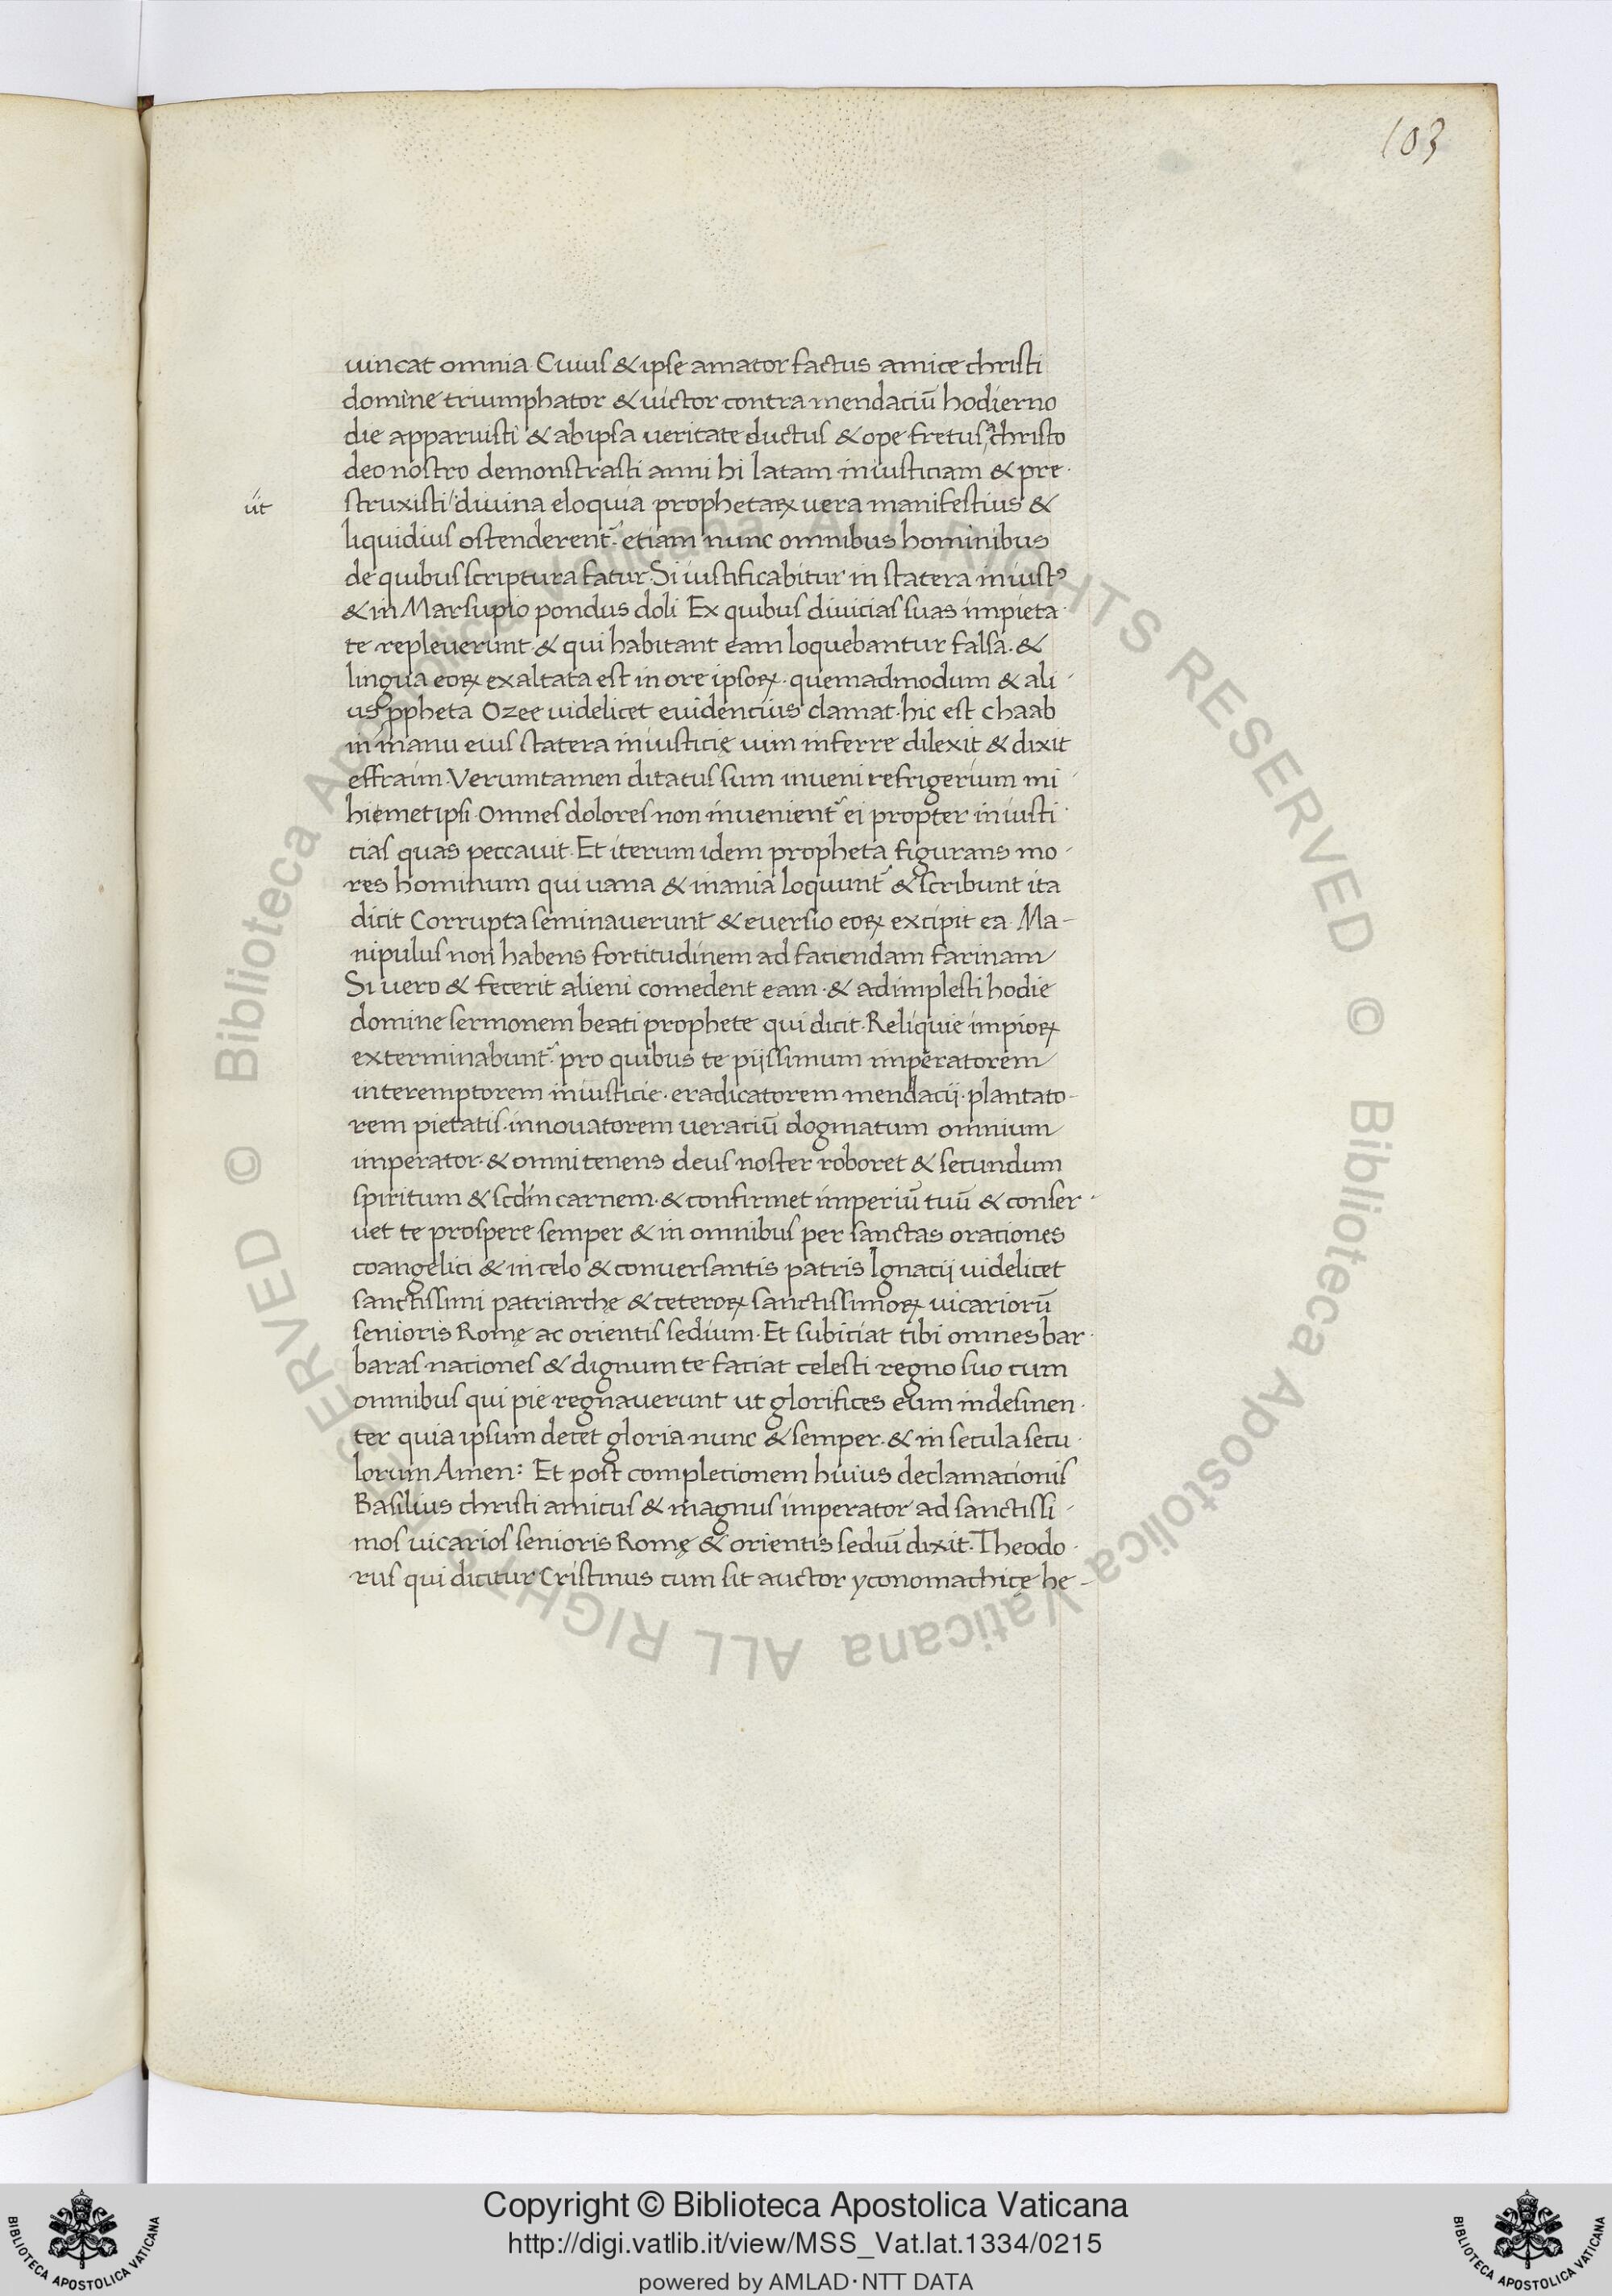 103
uincat omnia. Cuius & ipse amator factus amice christi
domine triumphator & uictor contra mendaciū hodierno
die apparuisti & ab ipsa ueritate ductus & ope fretus, a christo
deo nostro demonstrasti anni hi latam iniusticiam & pre-
ut
struxisti / diuina eloquia prophetaꝝ uera manifestius &
liquidius ostenderent᷑ etiam nunc omnibus hominibus
de quibus scriptura fatur. Si iustificabitur in statera iniustꝰ
& in Marsupio pondus doli Ex quibus diuicias suas impieta-
te repleuerunt & qui habitant eam loquebantur falsa. &
lingua eoꝝ exaltata est in ore ipsoꝝ. quemadmodum & ali-
us ꝓpheta Ozee uidelicet euidencius clamat. hic est chaab
in manu eius statera iniusticie uim inferre dilexit & dixit
effraim. Verumtamen ditatus sum inueni refrigerium mi-
hiemetipsi. Omnes dolores non inuenient᷑ ei propter iniusti-
cias quas peccauit. Et iterum idem propheta figurans mo-
res hominum qui uana & inania loquunt᷑ & scribunt ita
dicit Corrupta seminauerunt & euersio eoꝝ excipit ea. Ma-
nipulus non habens fortitudinem ad faciendam farinam
Si uero & fecerit alieni comedent eam. & adimplesti hodie
domine sermonem beati prophete qui dicit. Reliquie impioꝝ
exterminabunt᷑. pro quibus te pijssimum imperatorem
interemptorem iniusticie. eradicatorem mendacij. plantato-
rem pietatis. innouatorem ueraciū dogmatum omnium
imperator. & omnitenens deus noster roboret & secundum
spiritum & scdm carnem. & confirmet imperiū tuū & conser-
uet te prospere semper & in omnibus per sanctas orationes
coangelici & in celo & conuersantis patris Ignacij uidelicet
sanctissimi patriarche & ceteroꝝ sanctissimoꝝ uicarioruū
senioris Romę ac orientis sedium. Et subiciat tibi omnes bar-
baras naciones & dignum te faciat celesti regno suo cum
omnibus qui pie regnauerunt ut glorifices eum indesinen-
ter quia ipsum decet gloria nunc & semper. & in secula secu-
lorum Amen: Et post completionem huius declamacionis
Basilius christi amicus & magnus imperator ad sanctissi-
mos uicarios senioris Romę & orientis sediuī dixit. Theodo-
rus qui dicitur Cristinus cum sit auctor yconomachicę he-
© Biblioteca Apostolica Vaticana ALL RIGHTS RESERVED © Biblioteca Apostolica Vaticana ALL RIGHTS RESERVED
Copyright © Biblioteca Apostolica Vaticana
http://digi.vatlib.it/view/MSS_Vat.lat.1334/0215
powered by AMLAD · NTT DATA
BIBLIOTECA APOSTOLICA VATICANA
BIBLIOTECA APOSTOLICA VATICANA